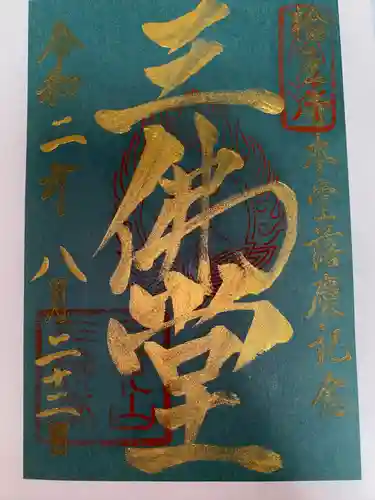 本堂落慶記念
三佛堂
令和二年八月二十二日